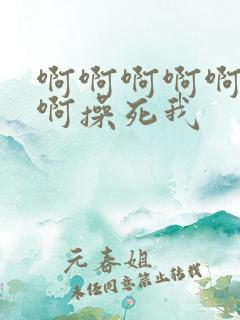 啊啊啊啊啊
啊操死我
元春姐
未经同意禁止转载